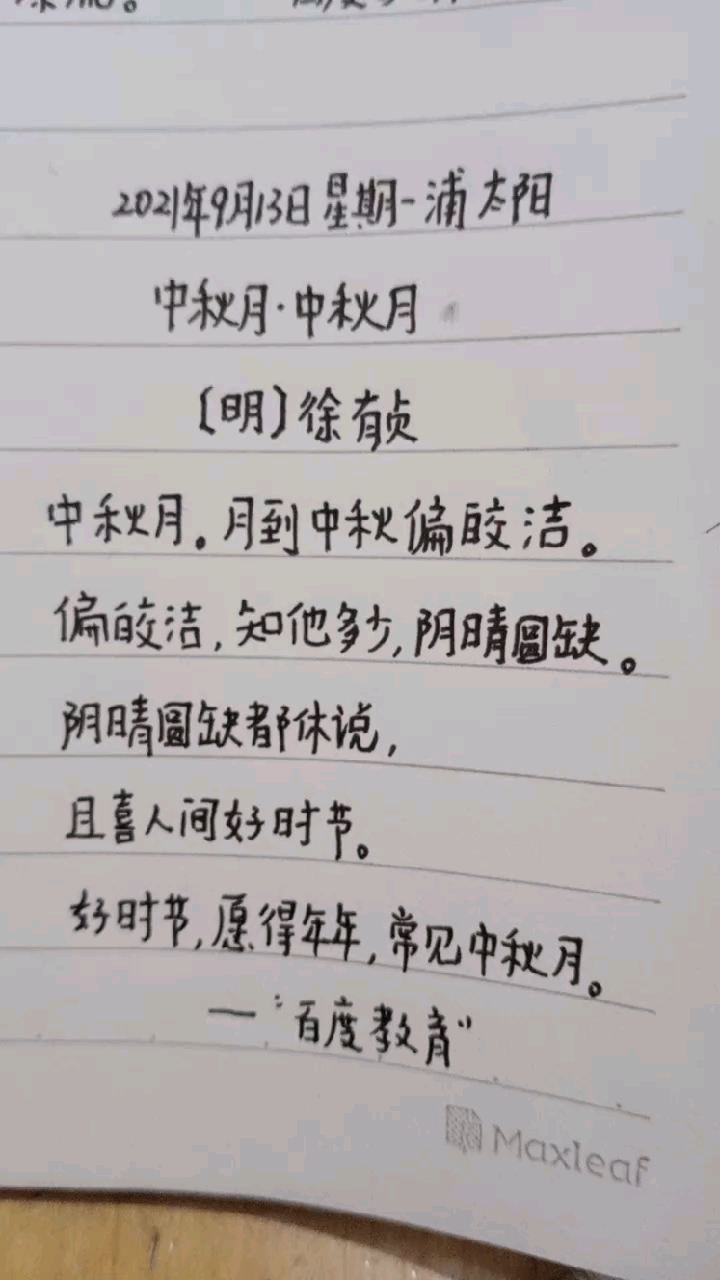 2021年9月13日星期一浦太阳
中秋月·中秋月
〔明〕徐有贞
中秋月。月到中秋偏皎洁。
偏皎洁,知他多少,阴晴圆缺。
阴晴圆缺都休说,
且喜人间好时节。
好时节,愿得年年,常见中秋月。
—“百度教育”
Maxleaf